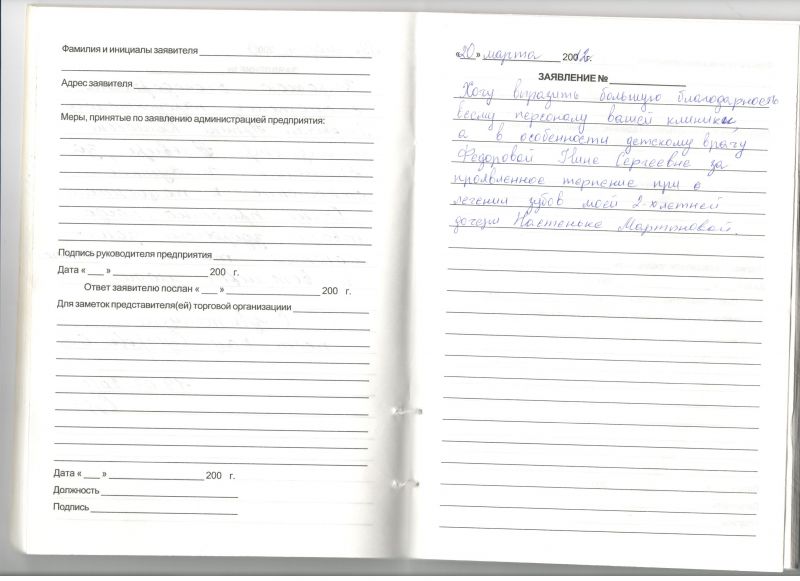 Фамилия и инициалы заявителя
Адрес заявителя
Меры, принятые по заявлению администрацией предприятия:
Подпись руководителя предприятия
Дата « » 200 г.
Ответ заявителю послан « » 200 г.
Для заметок представителя(ей) торговой организациии
Дата « » 200 г.
Должность
Подпись
«20» марта 2012г.
ЗАЯВЛЕНИЕ №
Хочу выразить большую благодарность
всему персоналу вашей клиники,
а в особенности детскому врачу
Федоровой Нине Сергеевне за
проявленное терпение при
лечении зубов моей 2-хлетней
дочери Настеньке Мартыновой.